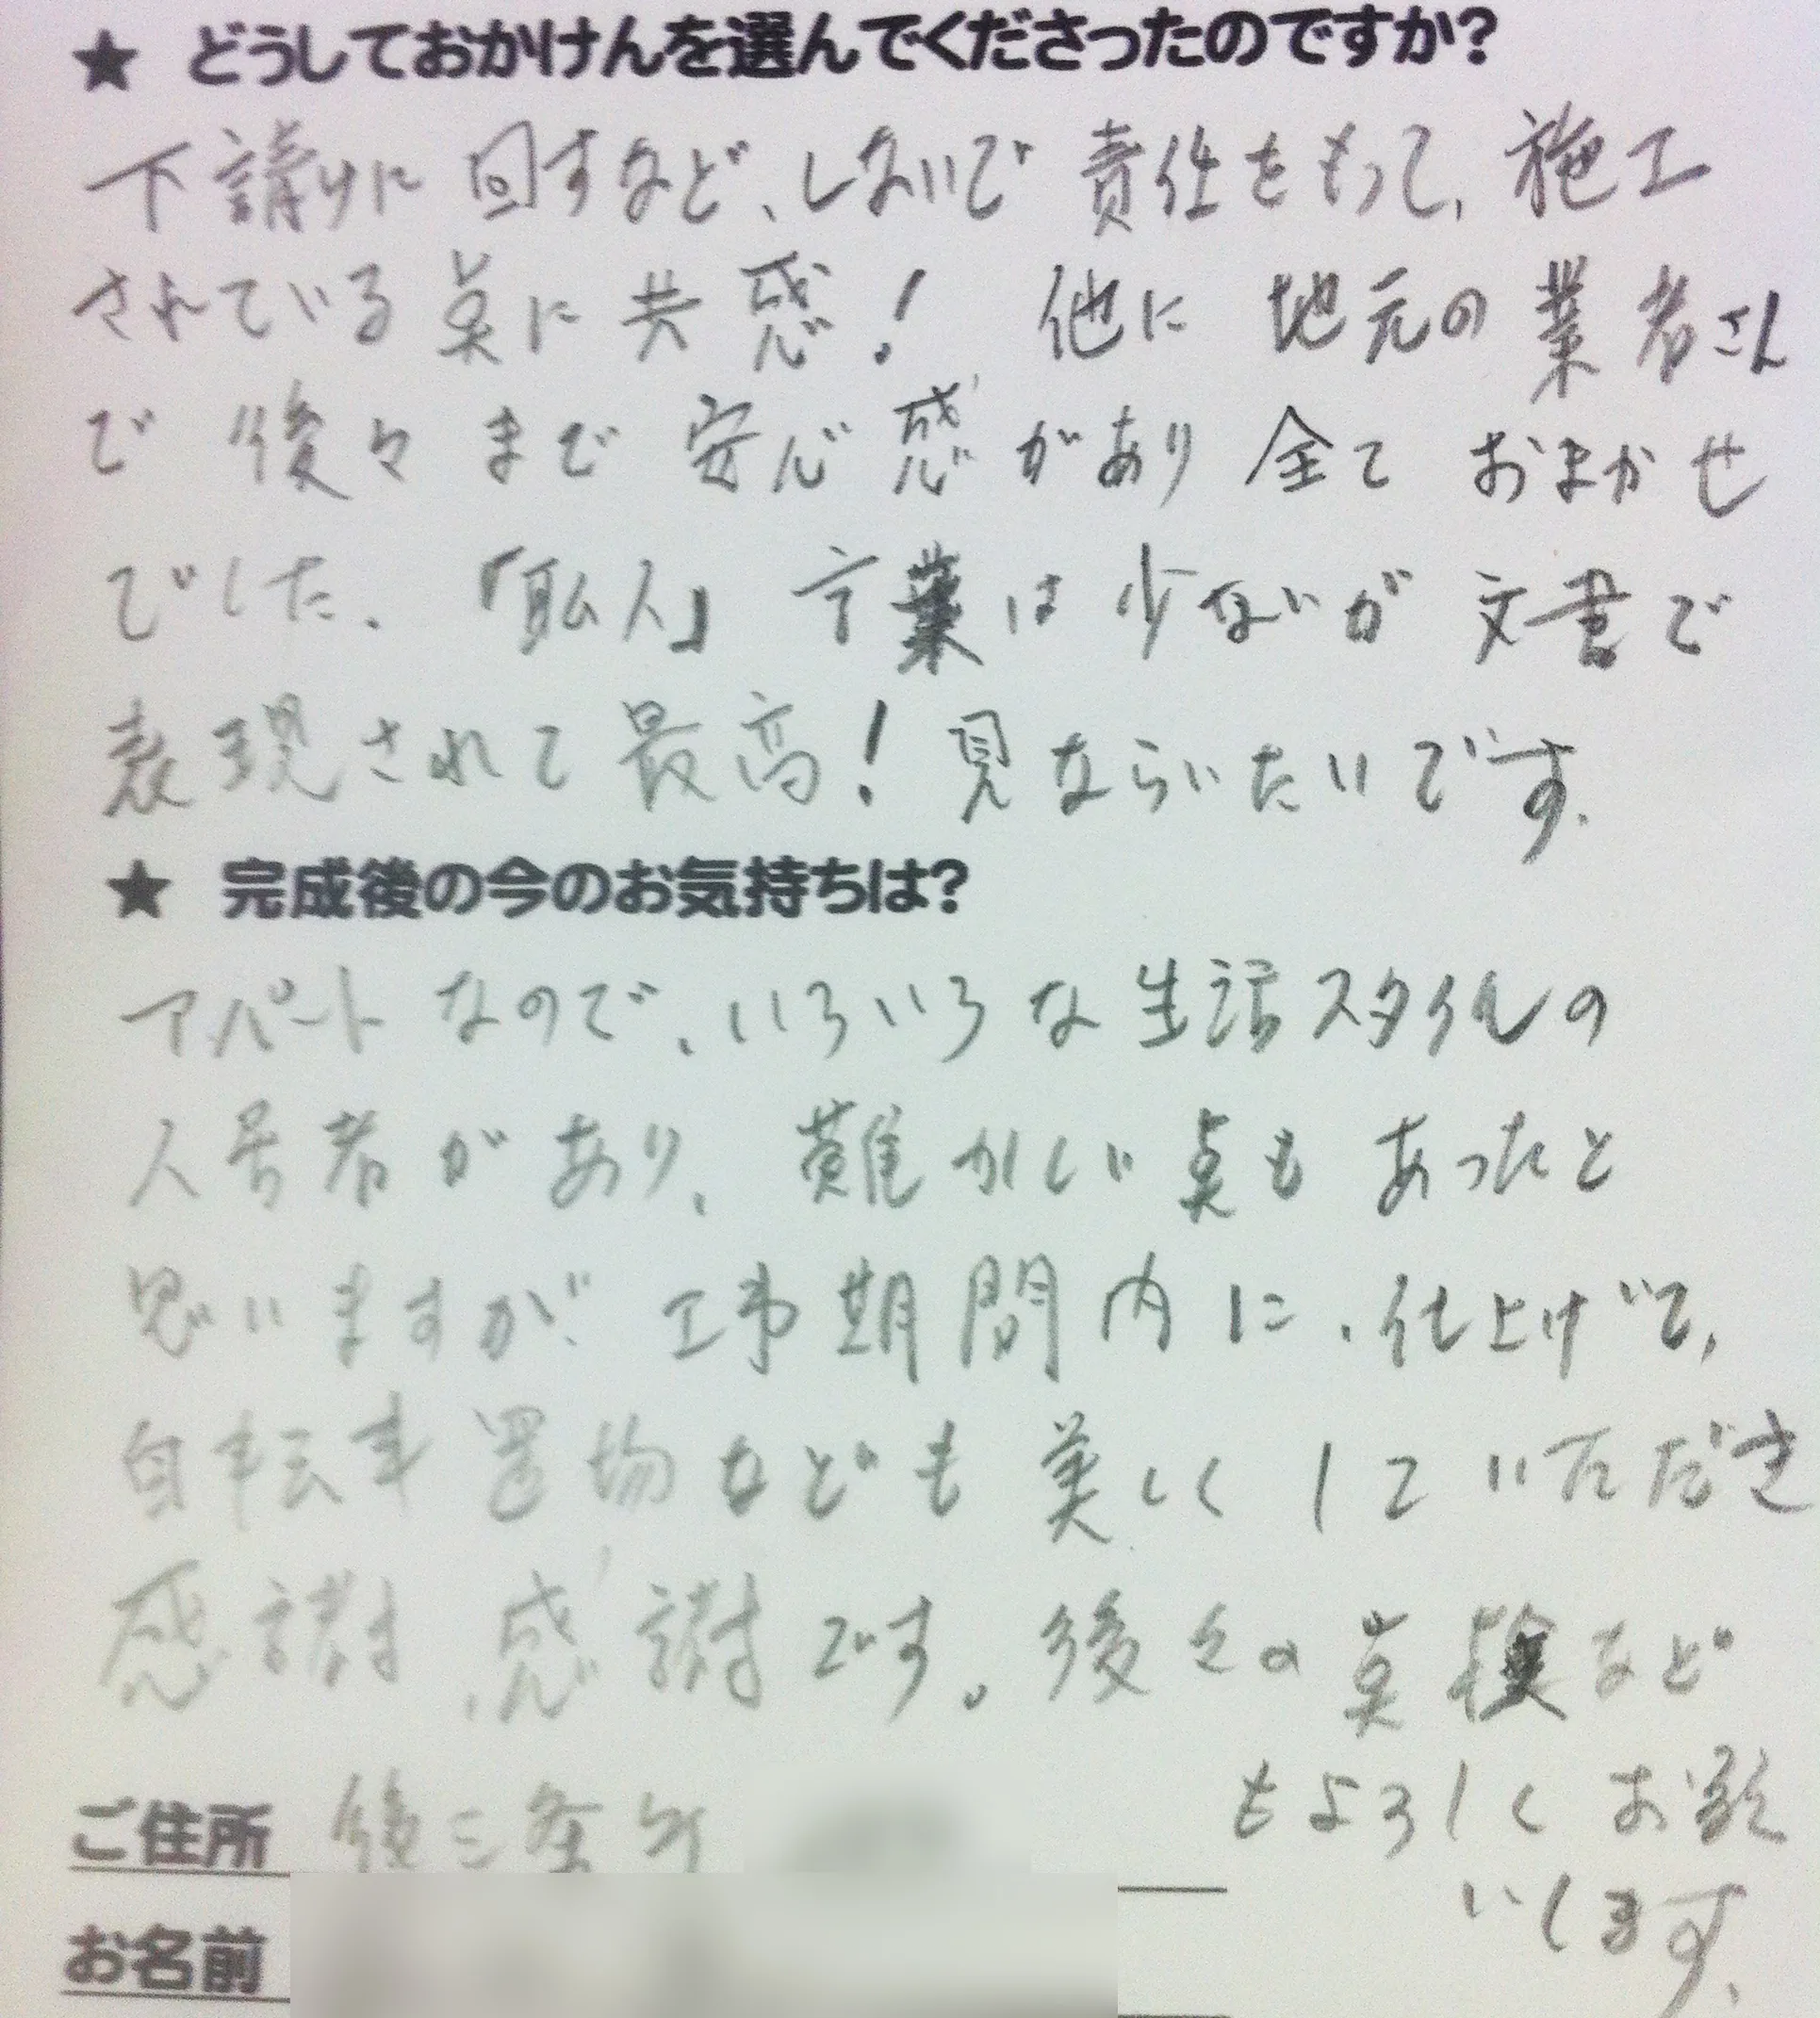 ★ どうしておかけんを選んでくださったのですか?
下請けに回すなど、しないで責任をもって、施工
されている点に共感! 他に地元の業者さん
で後々まで安心感があり全ておまかせ
でした、「職人」言葉は少ないが文書で
表現されて最高! 見ならいたいです.
★ 完成後の今のお気持ちは?
アパートなので、いろいろな生活スタイルの
入居者があり、難かしい点もあったと
思いますが、工事期間内に、仕上げて、
自転車置場なども美しくしていただき
感謝、感謝です。後々の点検など
もよろしくお願
いします、
ご住所 後三条町
お名前